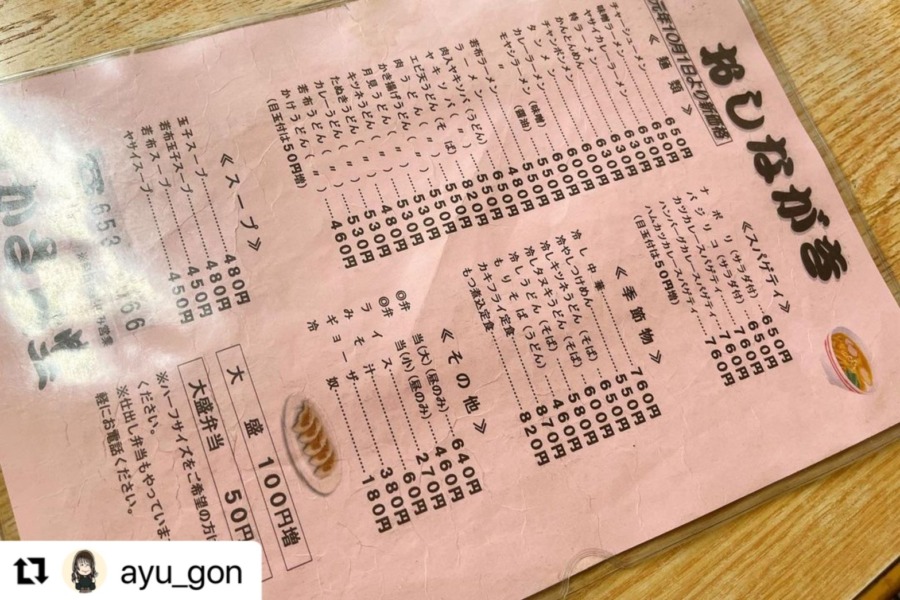 おしながき
元年10月1日より新価格
《麺類》
チャーシューメン 650円
味噌ラーメン 650円
ヤサイカレーラーメン 650円
特ラーメン 630円
かんとんめん 630円
チャンポンメン 600円
タンメン 600円
カレーラーメン 600円
モヤシラーメン(味噌) 550円
〃(醤油) 550円
若布ラーメン 550円
ラーメン 480円
肉入ヤキソバ(うどん) 650円
ヤキソバ(〃) 550円
エビ天うどん(そば) 820円
肉うどん(〃) 550円
かき揚げうどん(〃) 530円
月見うどん(〃) 530円
キツネうどん(〃) 530円
たぬきうどん(〃) 480円
カレーうどん(〃) 530円
若布うどん(〃) 530円
かけうどん(〃) 460円
(目玉付は50円増)
《スープ》
玉子スープ 480円
若布玉子スープ 480円
若布スープ 450円
ヤサイスープ 450円
《スパゲティ》
ナポリ(サラダ付) 650円
バジリコ(サラダ付) 650円
カツカレースパゲティ 760円
ハンバーグカレースパゲティ 760円
ハムカツカレースパゲティ 760円
(目玉付は50円増)
《季節物》
冷し中華 760円
冷やしつけめん 550円
冷しキツネうどん(そば) 650円
冷しタヌキうどん(そば) 600円
冷しうどん(そば) 580円
もりそば(うどん) 460円
カキフライ定食 870円
もつ煮込定食 820円
《その他》
◎弁当(大)(昼のみ) 640円
◎弁当(小)(昼のみ) 460円
ライス 270円
みそ汁 60円
ギョーザ 380円
冷奴 180円
大盛 100円増
大盛弁当 50円
※ハーフサイズをご希望の方は
ください。
※仕出し弁当もやっていま
軽にお電話ください。
ayu_gon